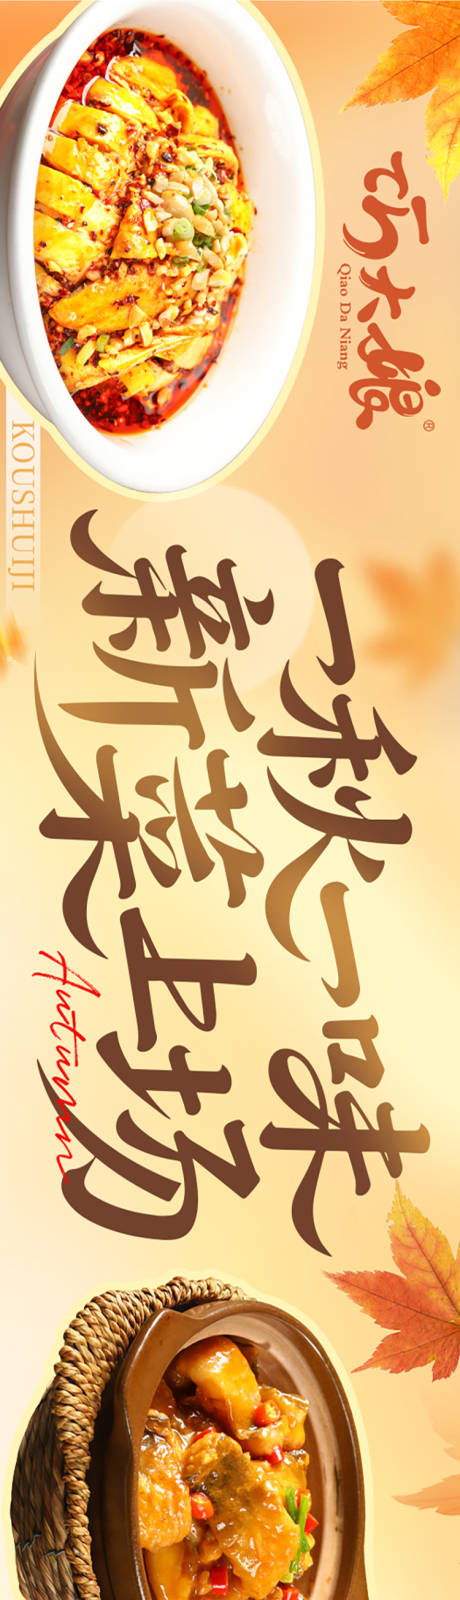 巧大娘®
Qiao Da Niang
一秋一味
新菜上场
Autumn
KOUSHUIJI